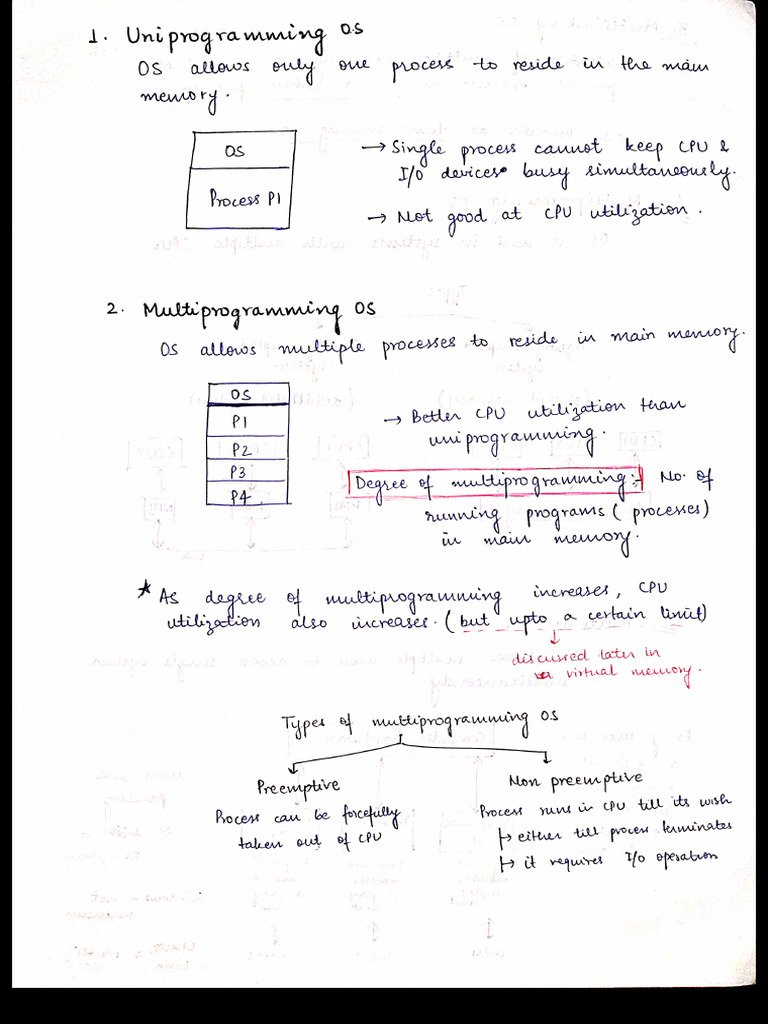 1. Uniprogramming OS
OS allows only one process to reside in the main
memory.
OS
Process P1
→ Single process cannot keep CPU &
I/O devices busy simultaneously.
→ Not good at CPU utilization.
2. Multiprogramming OS
OS allows multiple processes to reside in main memory.
OS
P1
P2
P3
P4
→ Better CPU utilization than
uniprogramming.
Degree of multiprogramming:- No. of
running programs (processes)
in main memory.
* As degree of multiprogramming increases, CPU
utilization also increases. (but upto a certain limit)
discussed later in
virtual memory.
Types of multiprogramming OS
Preemptive
Process can be forcefully
taken out of CPU
Non preemptive
Process runs in CPU till its wish
→ either till process terminates
→ it requires I/O operation